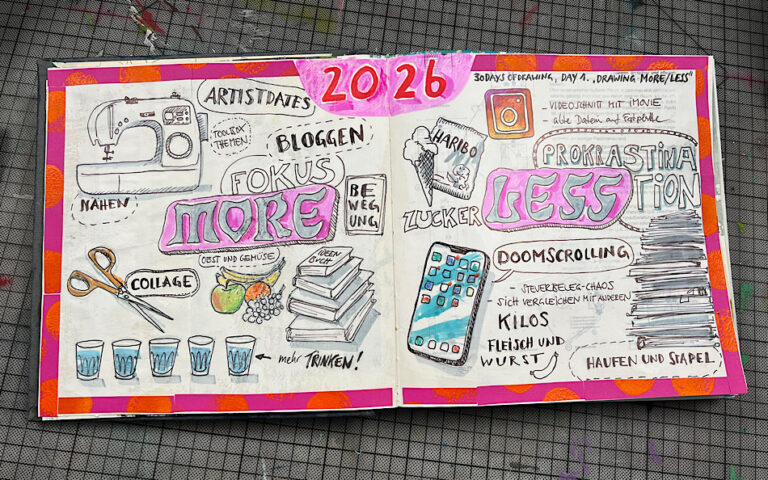 2026
30 DAYS OF DRAWING, DAY 1. „DRAWING MORE/LESS"
ARTISTDATES
TOOLBOX
THEMEN!
BLOGGEN
FOKUS
MORE
BE
WEG
UNG
NÄHEN
OBST UND GEMÜSE
IDEEN
BUCH
COLLAGE
mehr TRINKEN!
- VIDEOSCHNITT MIT iMOVIE
- alte Daten auf Festplatte
HARIBO
PROKRASTINA
TION
LESS
ZUCKER
DOOMSCROLLING
- STEUERBELEG-CHAOS
- SICH VERGLEICHEN MIT ANDEREN
KILOS
FLEISCH UND
WURST
HAUFEN UND STAPEL